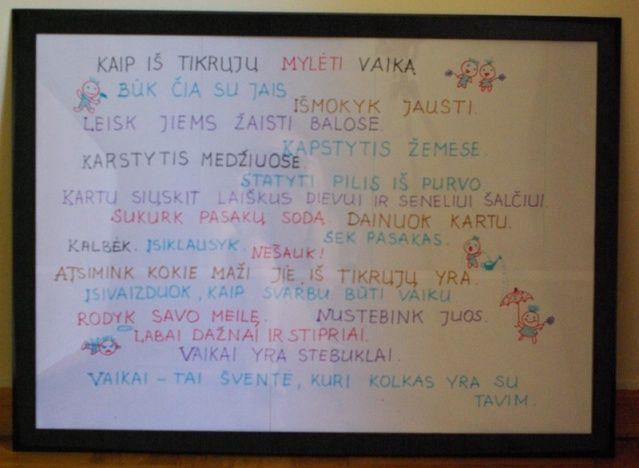 KAIP IŠ TIKRUJŲ MYLĖTI VAIKĄ
BŪK ČIA SU JAIS
IŠMOKYK JAUSTI.
LEISK JIEMS ŽAISTI BALOSE.
KAPSTYTIS ŽEMĖSE.
KARSTYTIS MEDŽIUOSE.
STATYTI PILIS IŠ PURVO
KARTU SIŲSKIT LAIŠKUS DIEVUI IR SENELIUI ŠALČIUI.
SUKURK PASAKŲ SODĄ. DAINUOK KARTU.
SEK PASAKAS.
KALBĖK. ĮSIKLAUSYK. NEŠAUK!
ATSIMINK KOKIE MAŽI JIE IŠ TIKRŲJŲ YRA.
ĮSIVAIZDUOK, KAIP SVARBU BŪTI VAIKU
RODYK SAVO MEILĘ. NUSTEBINK JUOS.
LABAI DAŽNAI IR STIPRIAI.
VAIKAI YRA STEBUKLAI.
VAIKAI – TAI ŠVENTĖ, KURI KOLKAS YRA SU
TAVIM.